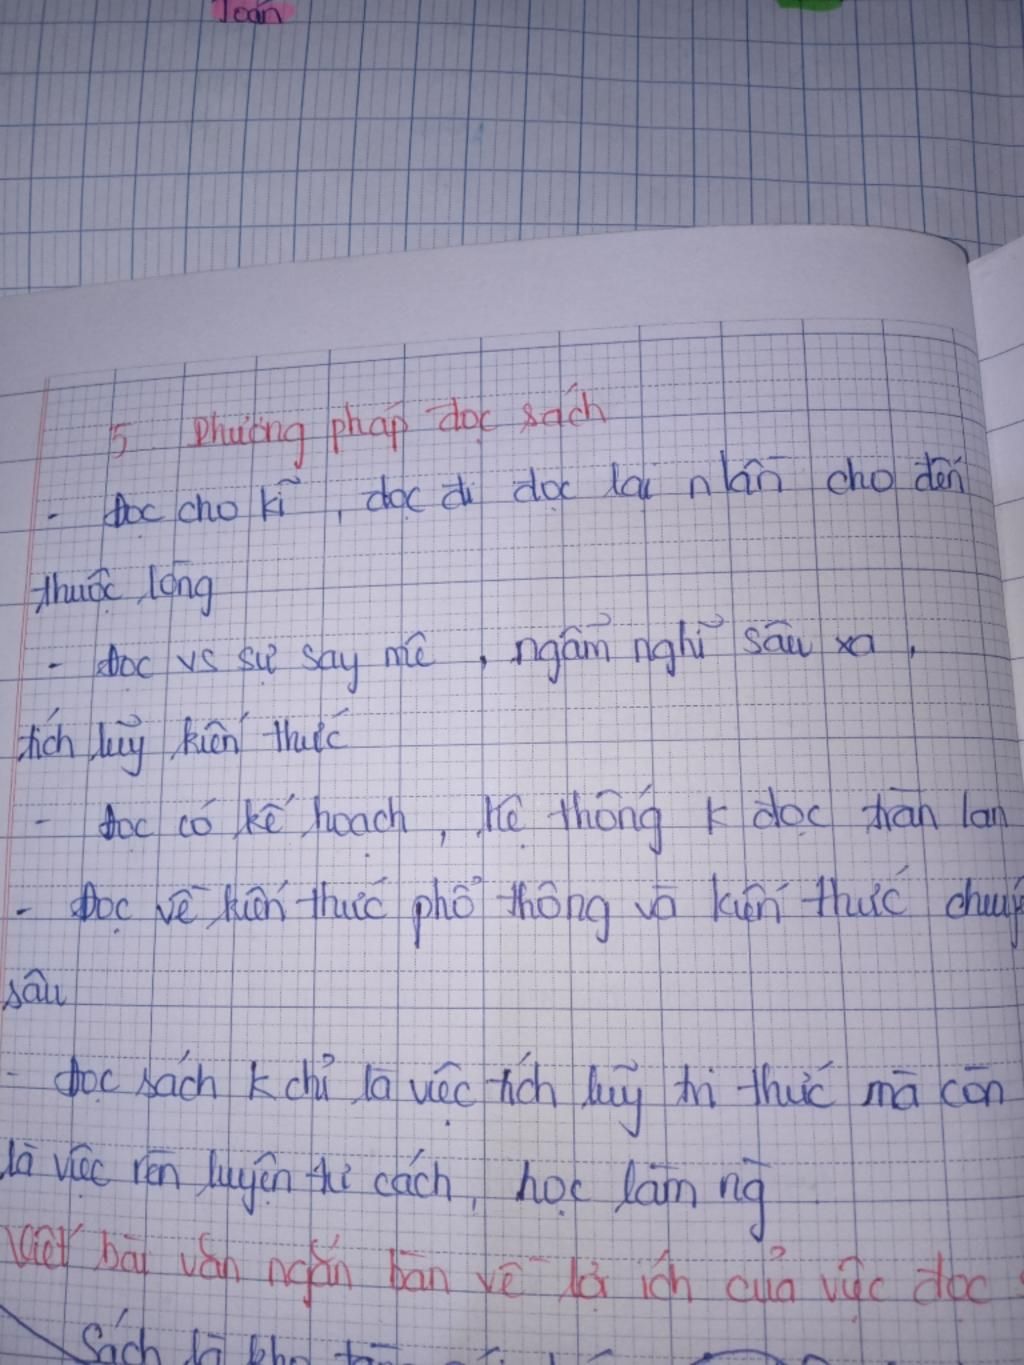 Toán
5 Phương pháp đọc sách
- Đọc cho kĩ, đọc đi đọc lại n lần cho đến
thuộc lòng
- Đọc vs sự say mê, ngẫm nghĩ sâu xa,
tích luỹ kiến thức
- Đọc có kế hoạch, hệ thống k đọc tràn lan
- Đọc về kiến thức phổ thông và kiến thức
sâu
- Đọc sách k chỉ là việc tích luỹ tri thức mà còn
là việc rèn luyện tư cách, học làm ng
Viết bài văn ngắn bàn về lợi ích của việc đọc
Sách là kho